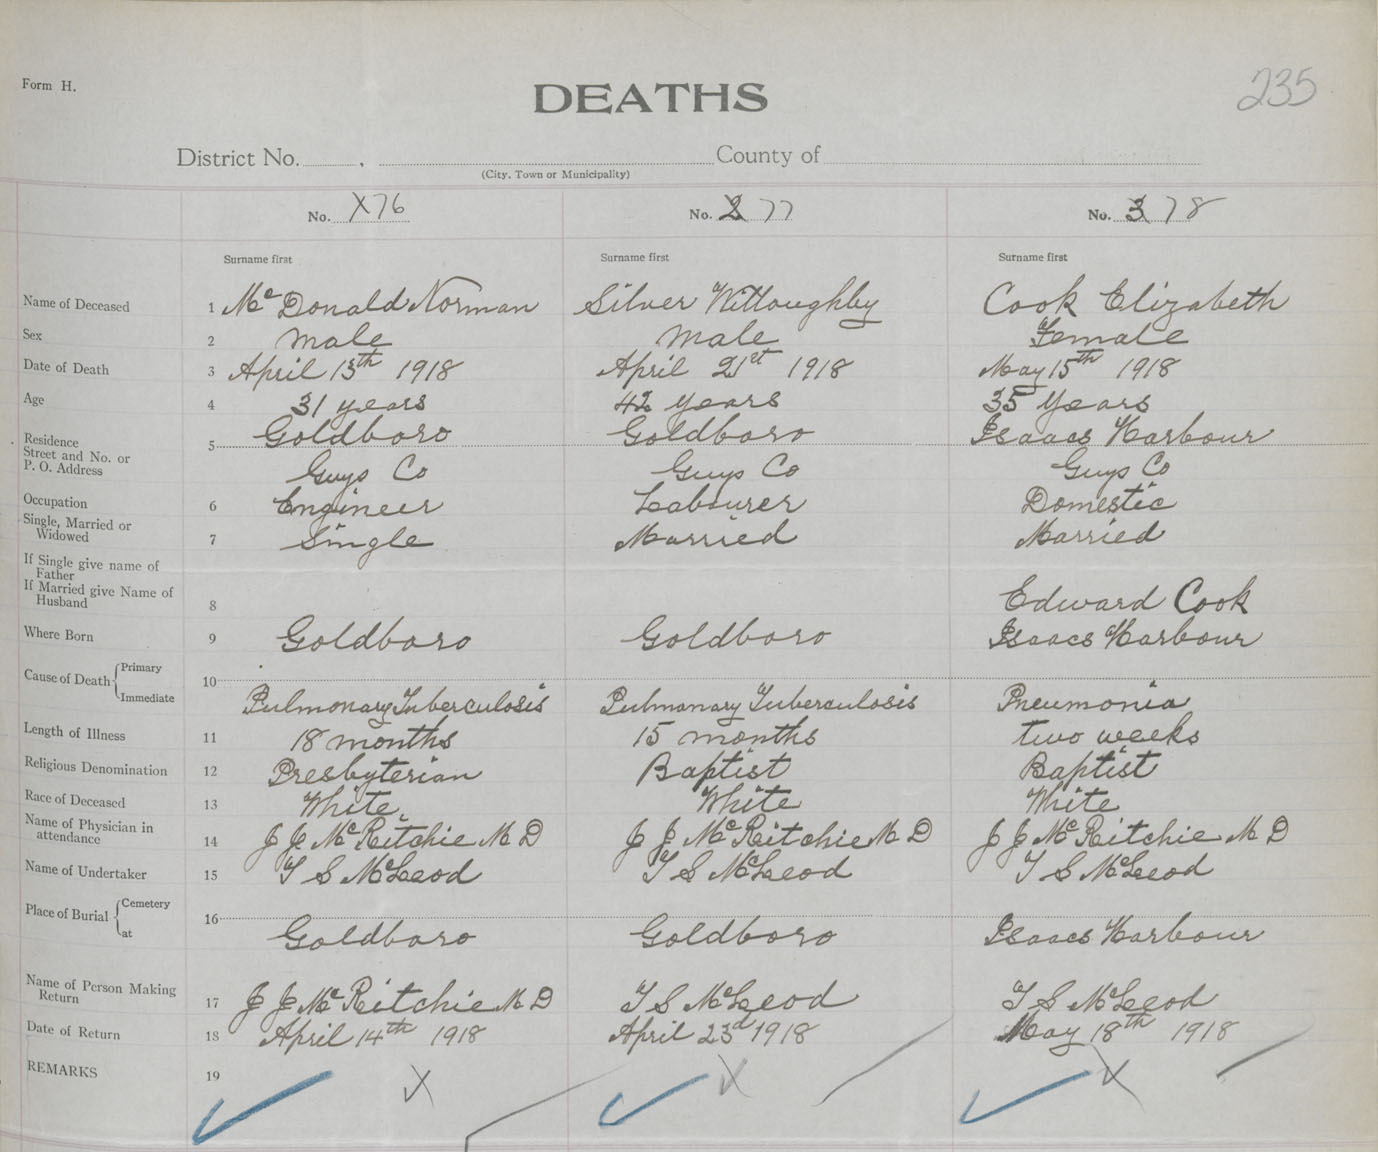 Form H.
DEATHS
235
District No. , County of
(City, Town or Municipality)
No. 1 76 No. 2 77 No. 3 78
Surname first Surname first Surname first
Name of Deceased 1 McDonald Norman Silver Willoughby Cook Elizabeth
Sex 2 Male Male Female
Date of Death 3 April 13th 1918 April 21st 1918 May 15th 1918
Age 4 31 years 42 years 35 years
Residence Street and No. or P. O. Address 5 Goldboro Goldboro Isaacs Harbour
Guys Co Guys Co Guys Co
Occupation 6 Engineer Labourer Domestic
Single, Married or Widowed 7 Single Married Married
If Single give name of Father
If Married give Name of Husband 8 Edward Cook
Where Born 9 Goldboro Goldboro Isaacs Harbour
Cause of Death Primary 10
Immediate Pulmonary Tuberculosis Pulmonary Tuberculosis Pneumonia
Length of Illness 11 18 months 15 months two weeks
Religious Denomination 12 Presbyterian Baptist Baptist
Race of Deceased 13 White White White
Name of Physician in attendance 14 J J McRitchie M D J J McRitchie M D J J McRitchie M D
Name of Undertaker 15 T S McLeod T S McLeod T S McLeod
Place of Burial Cemetery 16
at Goldboro Goldboro Isaacs Harbour
Name of Person Making Return 17 J J McRitchie M D T S McLeod T S McLeod
Date of Return 18 April 14th 1918 April 23d 1918 May 18th 1918
REMARKS 19 X X X